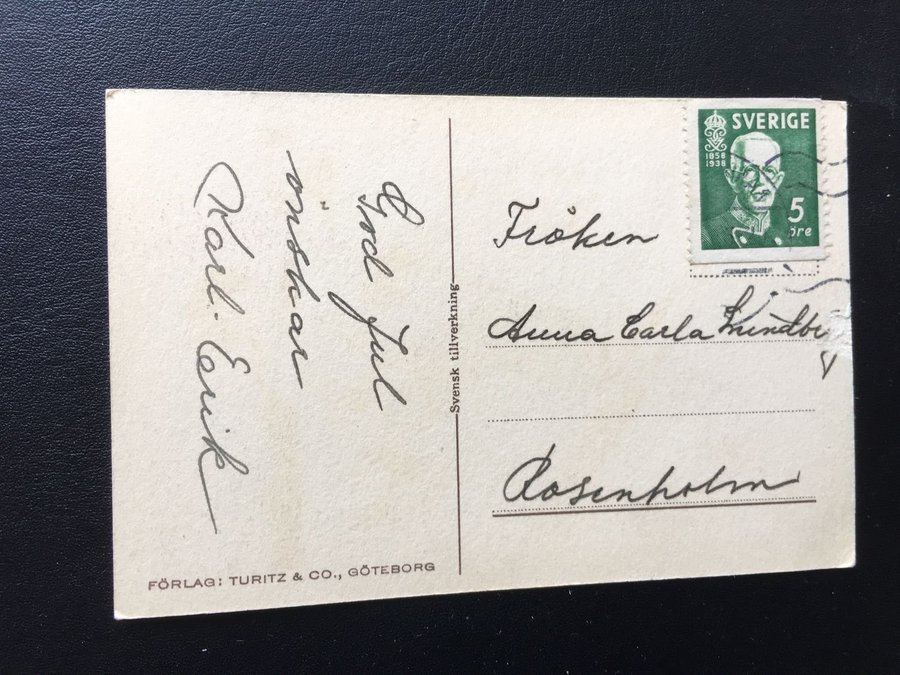 God Jul
önskar
Karl-Erik
FÖRLAG: TURITZ & CO., GÖTEBORG
Svensk tillverkning
SVERIGE
1858
1938
5
öre
Fröken
Anna Carla Lundby
Rosenholm